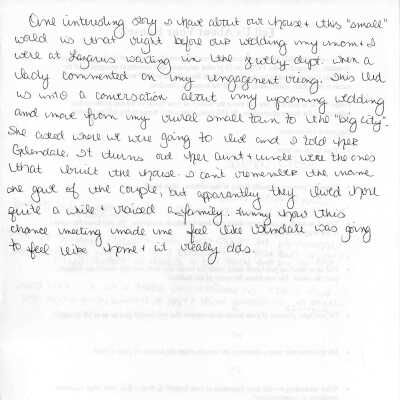 One interesting story I have about our house + this "small"
world is that right before our wedding my mom + I
were at Lazarus waiting in the jewelry dept. when a
lady commented on my engagement ring. This led
us into a conversation about my upcoming wedding
and move from my rural small town to the "big city".
She asked where we were going to live and I told her
Glendale. It turns out her aunt + uncle were the ones
that built the house. I can't remember the name
she gave of the couple, but apparently they lived here
quite a while + raised a family. Funny how this
chance meeting made me feel like Glendale was going
to feel like home + it really does.